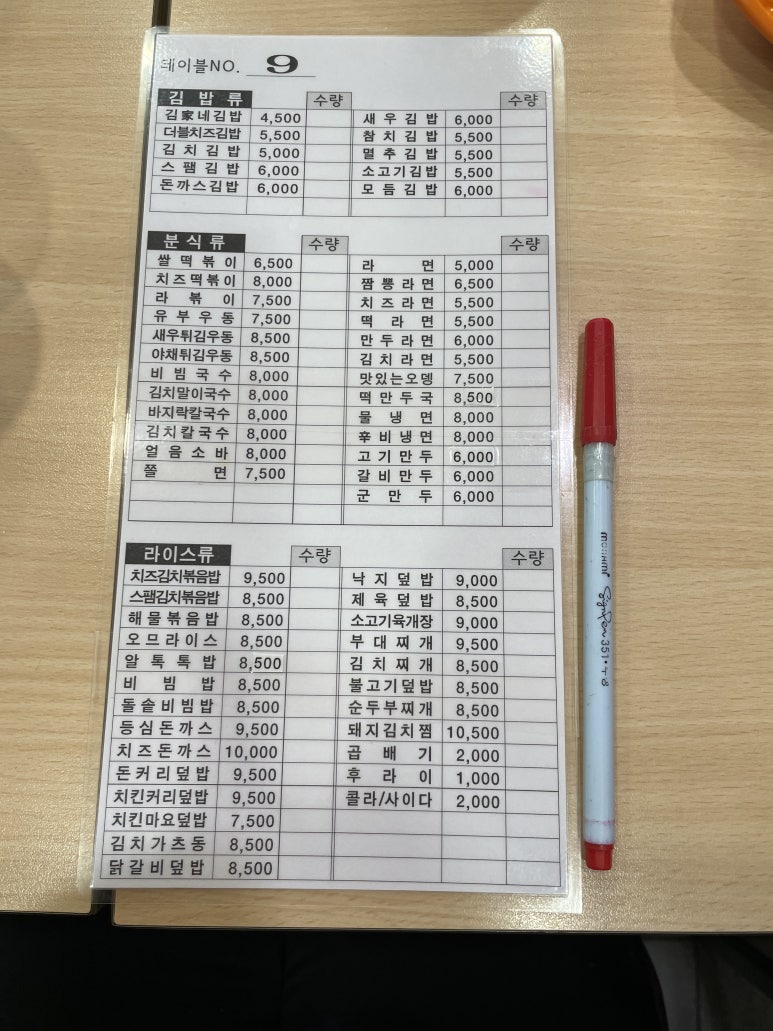 테이블NO. 9
김 밥 류 수량 수량
김家네김밥 4,500 새 우 김 밥 6,000
더블치즈김밥 5,500 참 치 김 밥 5,500
김 치 김 밥 5,000 멸 추 김 밥 5,500
스 팸 김 밥 6,000 소고기김밥 5,500
돈까스김밥 6,000 모 듬 김 밥 6,000
분 식 류 수량 수량
쌀 떡 볶 이 6,500 라 면 5,000
치즈떡볶이 8,000 짬 뽕 라 면 6,500
라 볶 이 7,500 치 즈 라 면 5,500
유 부 우 동 7,500 떡 라 면 5,500
새우튀김우동 8,500 만 두 라 면 6,000
야채튀김우동 8,500 김 치 라 면 5,500
비 빔 국 수 8,000 맛있는오뎅 7,500
김치말이국수 8,000 떡 만 두 국 8,500
바지락칼국수 8,000 물 냉 면 8,000
김치칼국수 8,000 辛 비 냉 면 8,000
얼 음 소 바 8,000 고 기 만 두 6,000
쫄 면 7,500 갈 비 만 두 6,000
군 만 두 6,000
라이스류 수량 수량
치즈김치볶음밥 9,500 낙 지 덮 밥 9,000
스팸김치볶음밥 8,500 제 육 덮 밥 8,500
해물볶음밥 8,500 소고기육개장 9,000
오므라이스 8,500 부 대 찌 개 9,500
알 톡 톡 밥 8,500 김 치 찌 개 8,500
비 빔 밥 8,500 불고기덮밥 8,500
돌솥비빔밥 8,500 순두부찌개 8,500
등심돈까스 9,500 돼지김치찜 10,500
치즈돈까스 10,000 곱 배 기 2,000
돈커리덮밥 9,500 후 라 이 1,000
치킨커리덮밥 9,500 콜라/사이다 2,000
치킨마요덮밥 7,500
김치가츠동 8,500
닭갈비덮밥 8,500
monami Signpen 351·F8